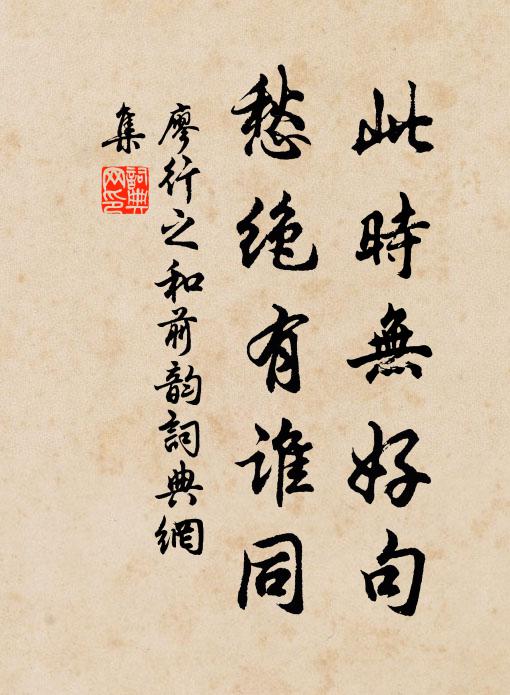 此時無好句
愁绝有谁同
廖行之和前韵詞典網
集
詞典
网印